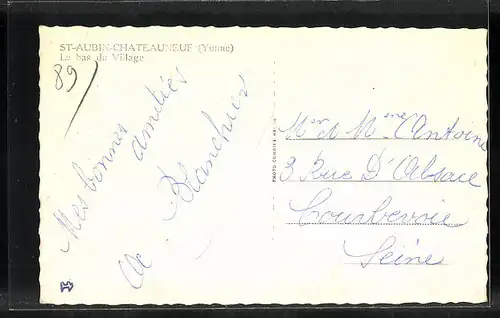 ST-AUBIN-CHATEAUNEUF (Yonne)
Le bas du Village
89
Mes bonnes amitiés
Blanchier
PHOTO COMBIER MACON
Mr & Mme Antoine
3 Rue D'Alsace
Courbevoie
Seine